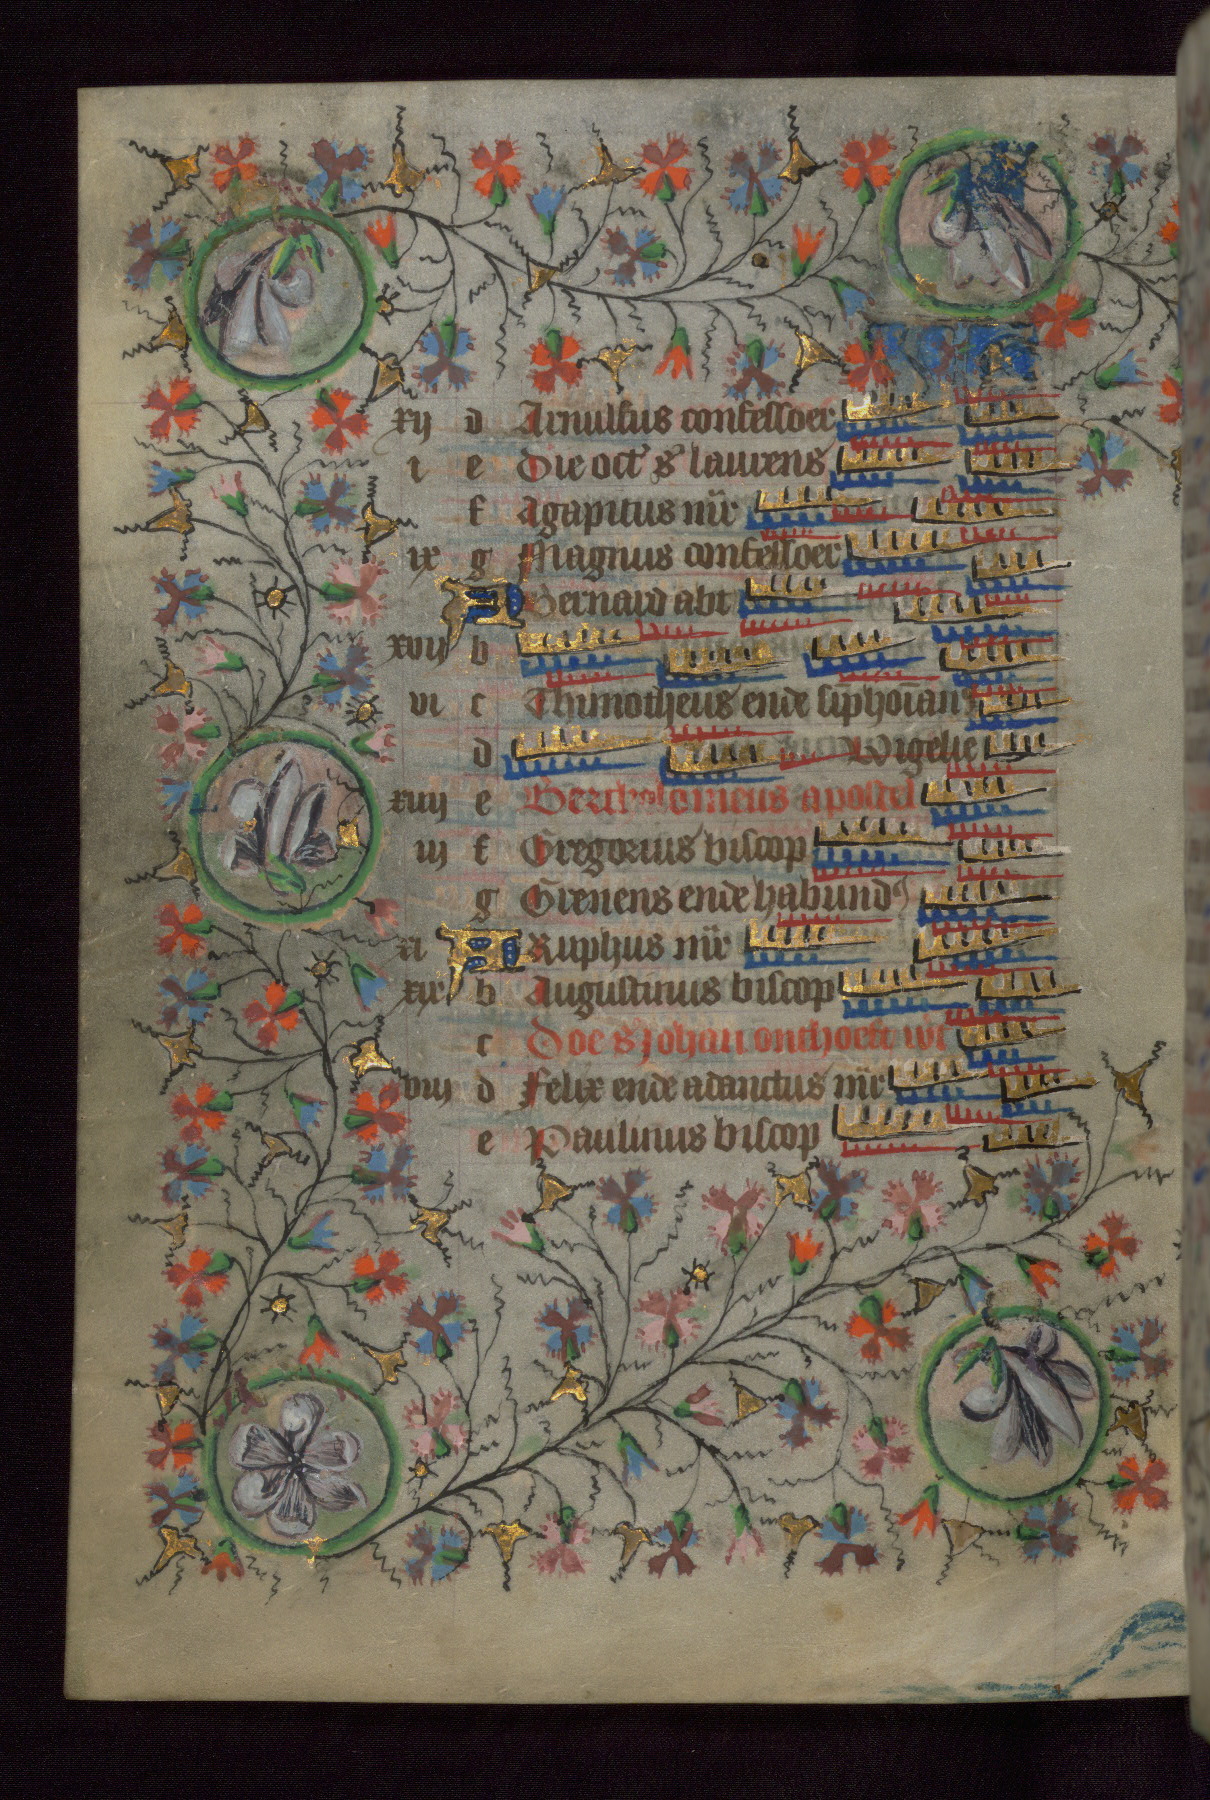 xij d Arnulfus confessoer
i e Die oct' s' laurens
f Agapitus mr̄
ix g Magnus confessoer
A Bernard abt
xvij b
vi c Thimotheus ende simphoriani
d Vigelie
xiiij e Bertholomeus apostel
iij f Gregorius biscop
g Girenens ende habund9
xi A Ruphus mr̄
xix b Augustinus biscop
c Doe s Johan onthoeft wt
viij d Felix ende adauctus mr̄
e Paulinus biscop